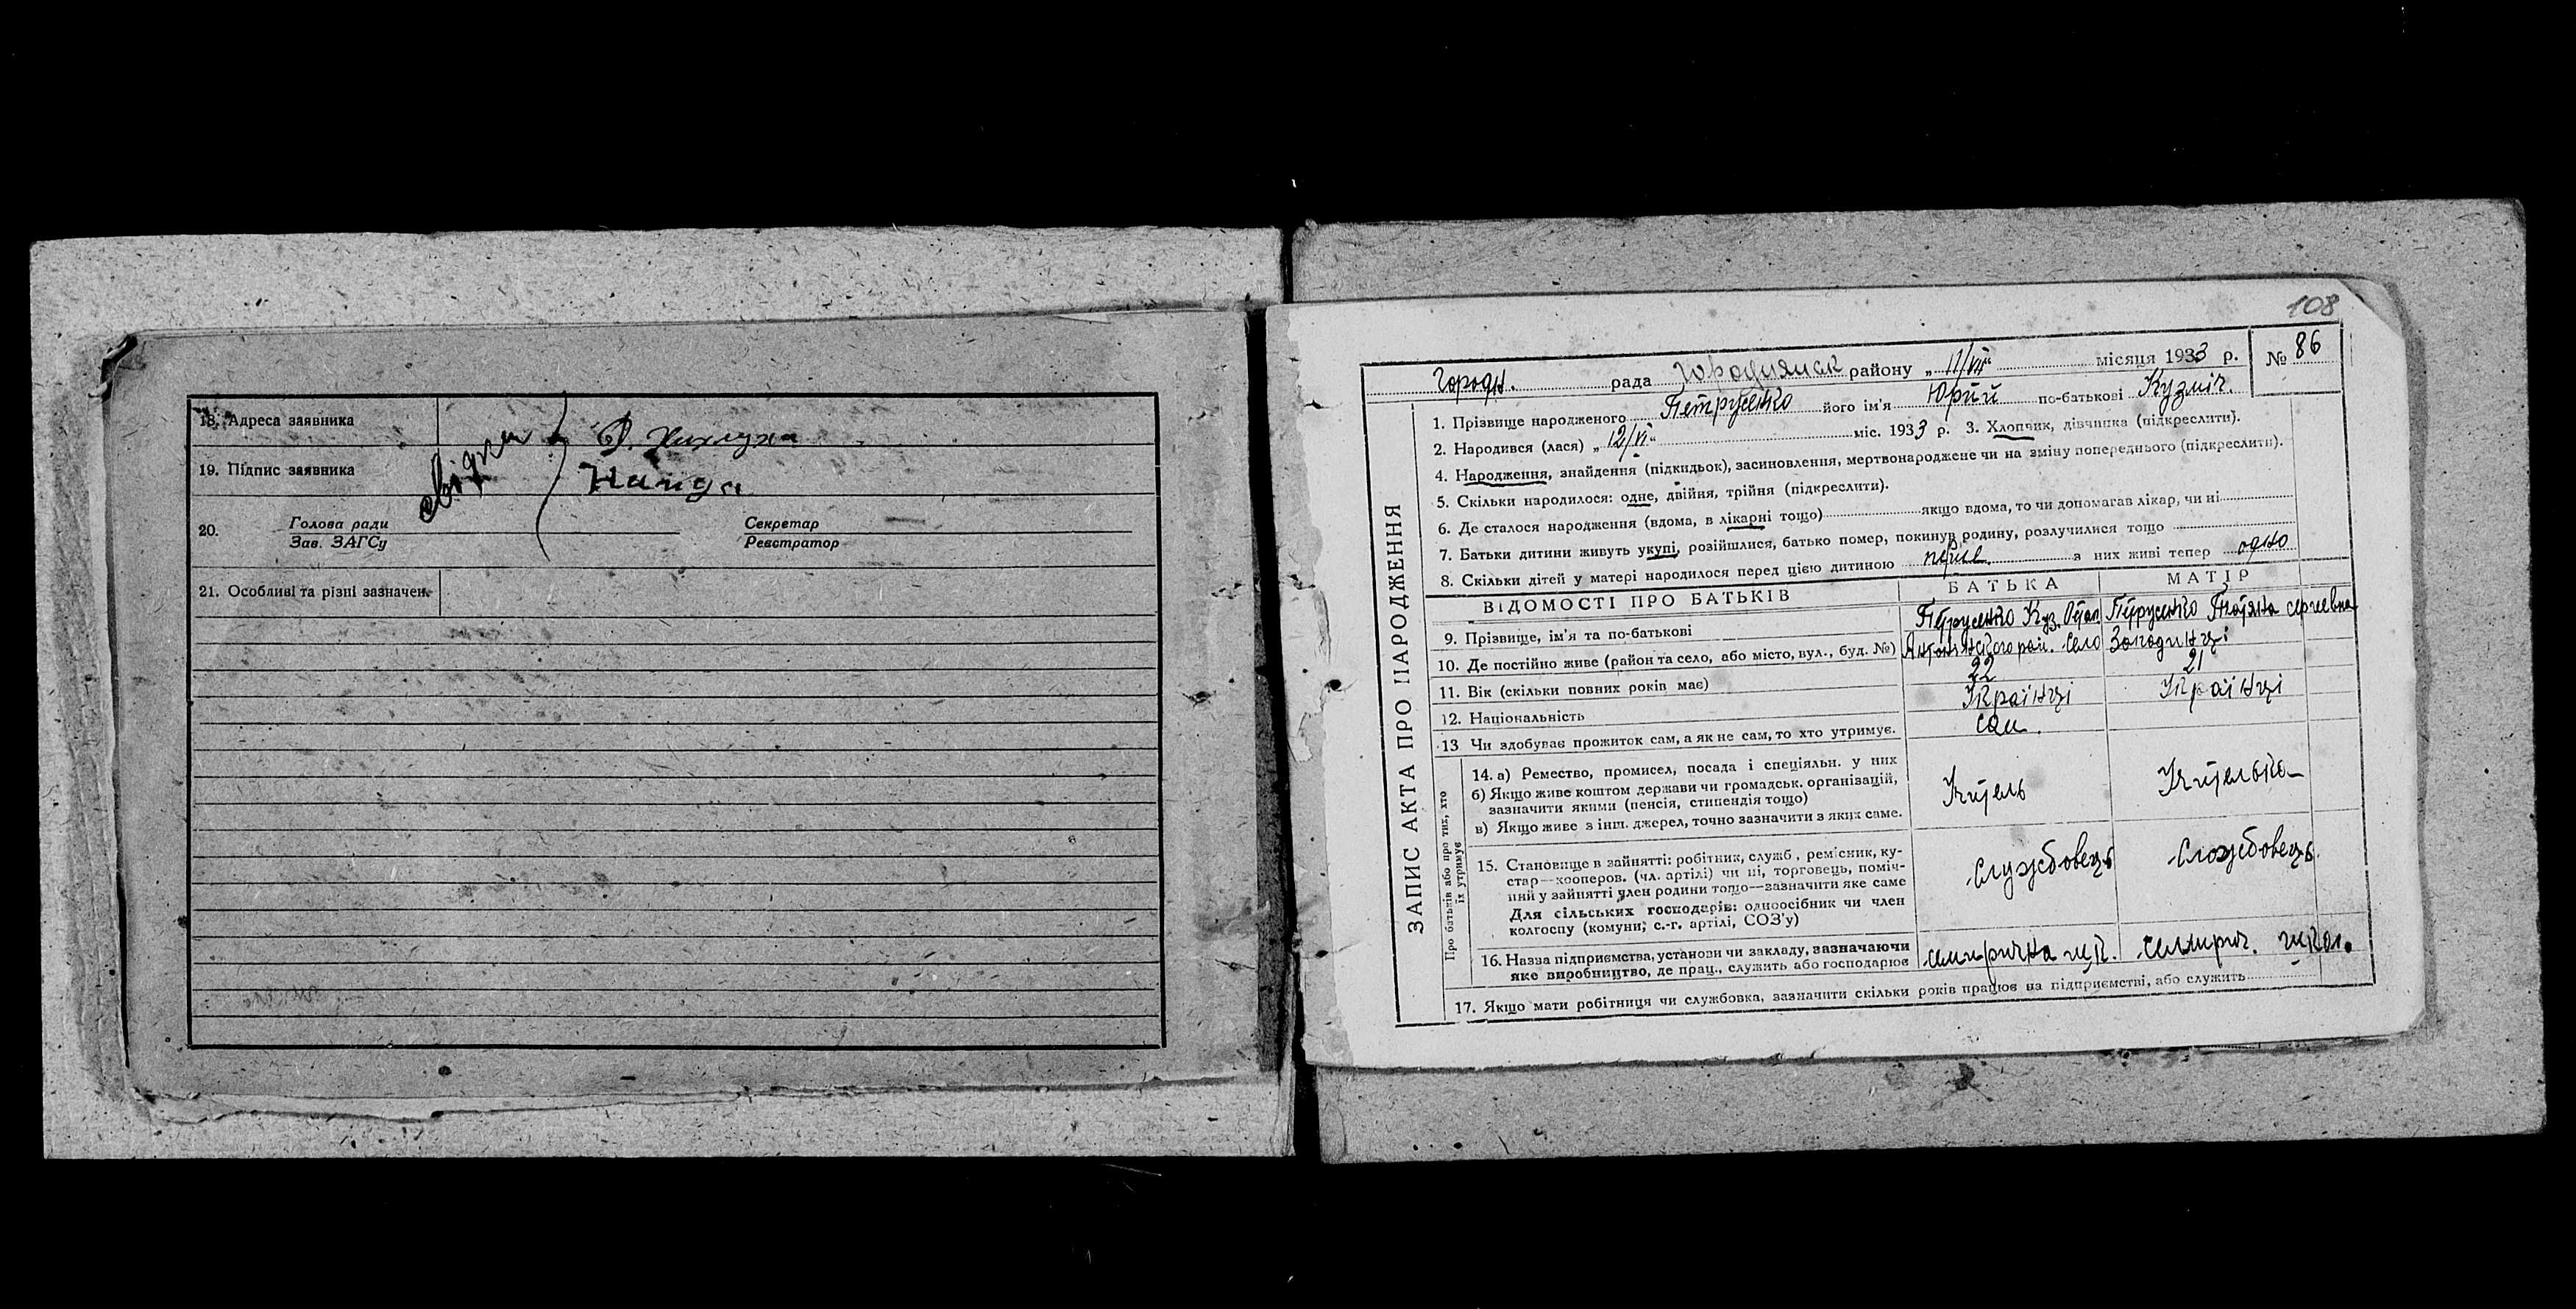 18. Адреса заявника
19. Підпис заявника
свідки
Найда
20. Голова ради Секретар
Зав. ЗАГСу Реєстратор
21. Особливі та різні зазначен.
108
Городн. рада Городнянск району „ 11/VII“ місяця 1933 р. № 86
ЗАПИС АКТА ПРО НАРОДЖЕННЯ
1. Прізвище народженого Петрусенко його ім'я Юрій по-батькові Кузміч.
2. Народився (лася) „ 12/VI“ міс. 1933 р. 3. Хлопчик, дівчинка (підкреслити).
4. Народження, знайдення (підкидьок), засиновлення, мертвонароджене чи на зміну попереднього (підкреслити).
5. Скільки народилося: одне, двійня, трійня (підкреслити).
6. Де сталося народження (вдома, в лікарні тощо) якщо вдома, то чи допомагав лікар, чи ні
7. Батьки дитини живуть укупі, розійшлися, батько помер, покинув родину, розлучилися тощо
8. Скільки дітей у матері народилося перед цією дитиною перше. з них живі тепер одно
ВІДОМОСТІ ПРО БАТЬКІВ БАТЬКА МАТІР
9. Прізвище, ім'я та по-батькові Петрусенко Куз. Петрусенко Тотяна сергеевна
10. Де постійно живе (район та село, або місто, вул., буд. №) рай. Село
11. Вік (скільки повних років має) 22 21
12. Національність Українці Українці
13 Чи здобуває прожиток сам, а як не сам, то хто утримує. сам.
Про батьків або про тих, хто їх утримує
14. а) Ремество, промисел, посада і спеціяльн. у них
б) Якщо живе коштом держави чи громадськ. організацій,
зазначити якими (пенсія, стипендія тощо) Учитель Учителька
в) Якщо живе з інш. джерел, точно зазначити з яких саме.
15. Становище в зайнятті: робітник, служб., ремісник, ку-
стар—кооперов. (чл. артілі) чи ні, торговець, поміч- Службовець Службовець
ний у зайнятті член родини тощо—зазначити яке саме
Для сільських господарів: одноосібник чи член
колгоспу (комуни, с.-г. артілі, СОЗ'у)
16. Назва підприємства, установи чи закладу, зазначаючи
яке виробництво, де прац., служить або господарює семирична шк. семирич. школ.
17. Якщо мати робітниця чи службовка, зазначити скільки років працює на підприємстві, або служить